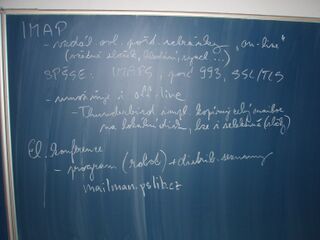 IMAP
- vzdál. ovl. pošt. schránky "on-line"
(včetně složek, hledání, ...)
SPŠSE: IMAPS, port 993, SSL/TLS
- umožňuje i off-line
- Thunderbird impl. kopíruje celý mailbox
na lokální disk, lze i selektivně (složky)
El. konference
- program (robot) + distrib. seznamy
mailman.pslib.cz